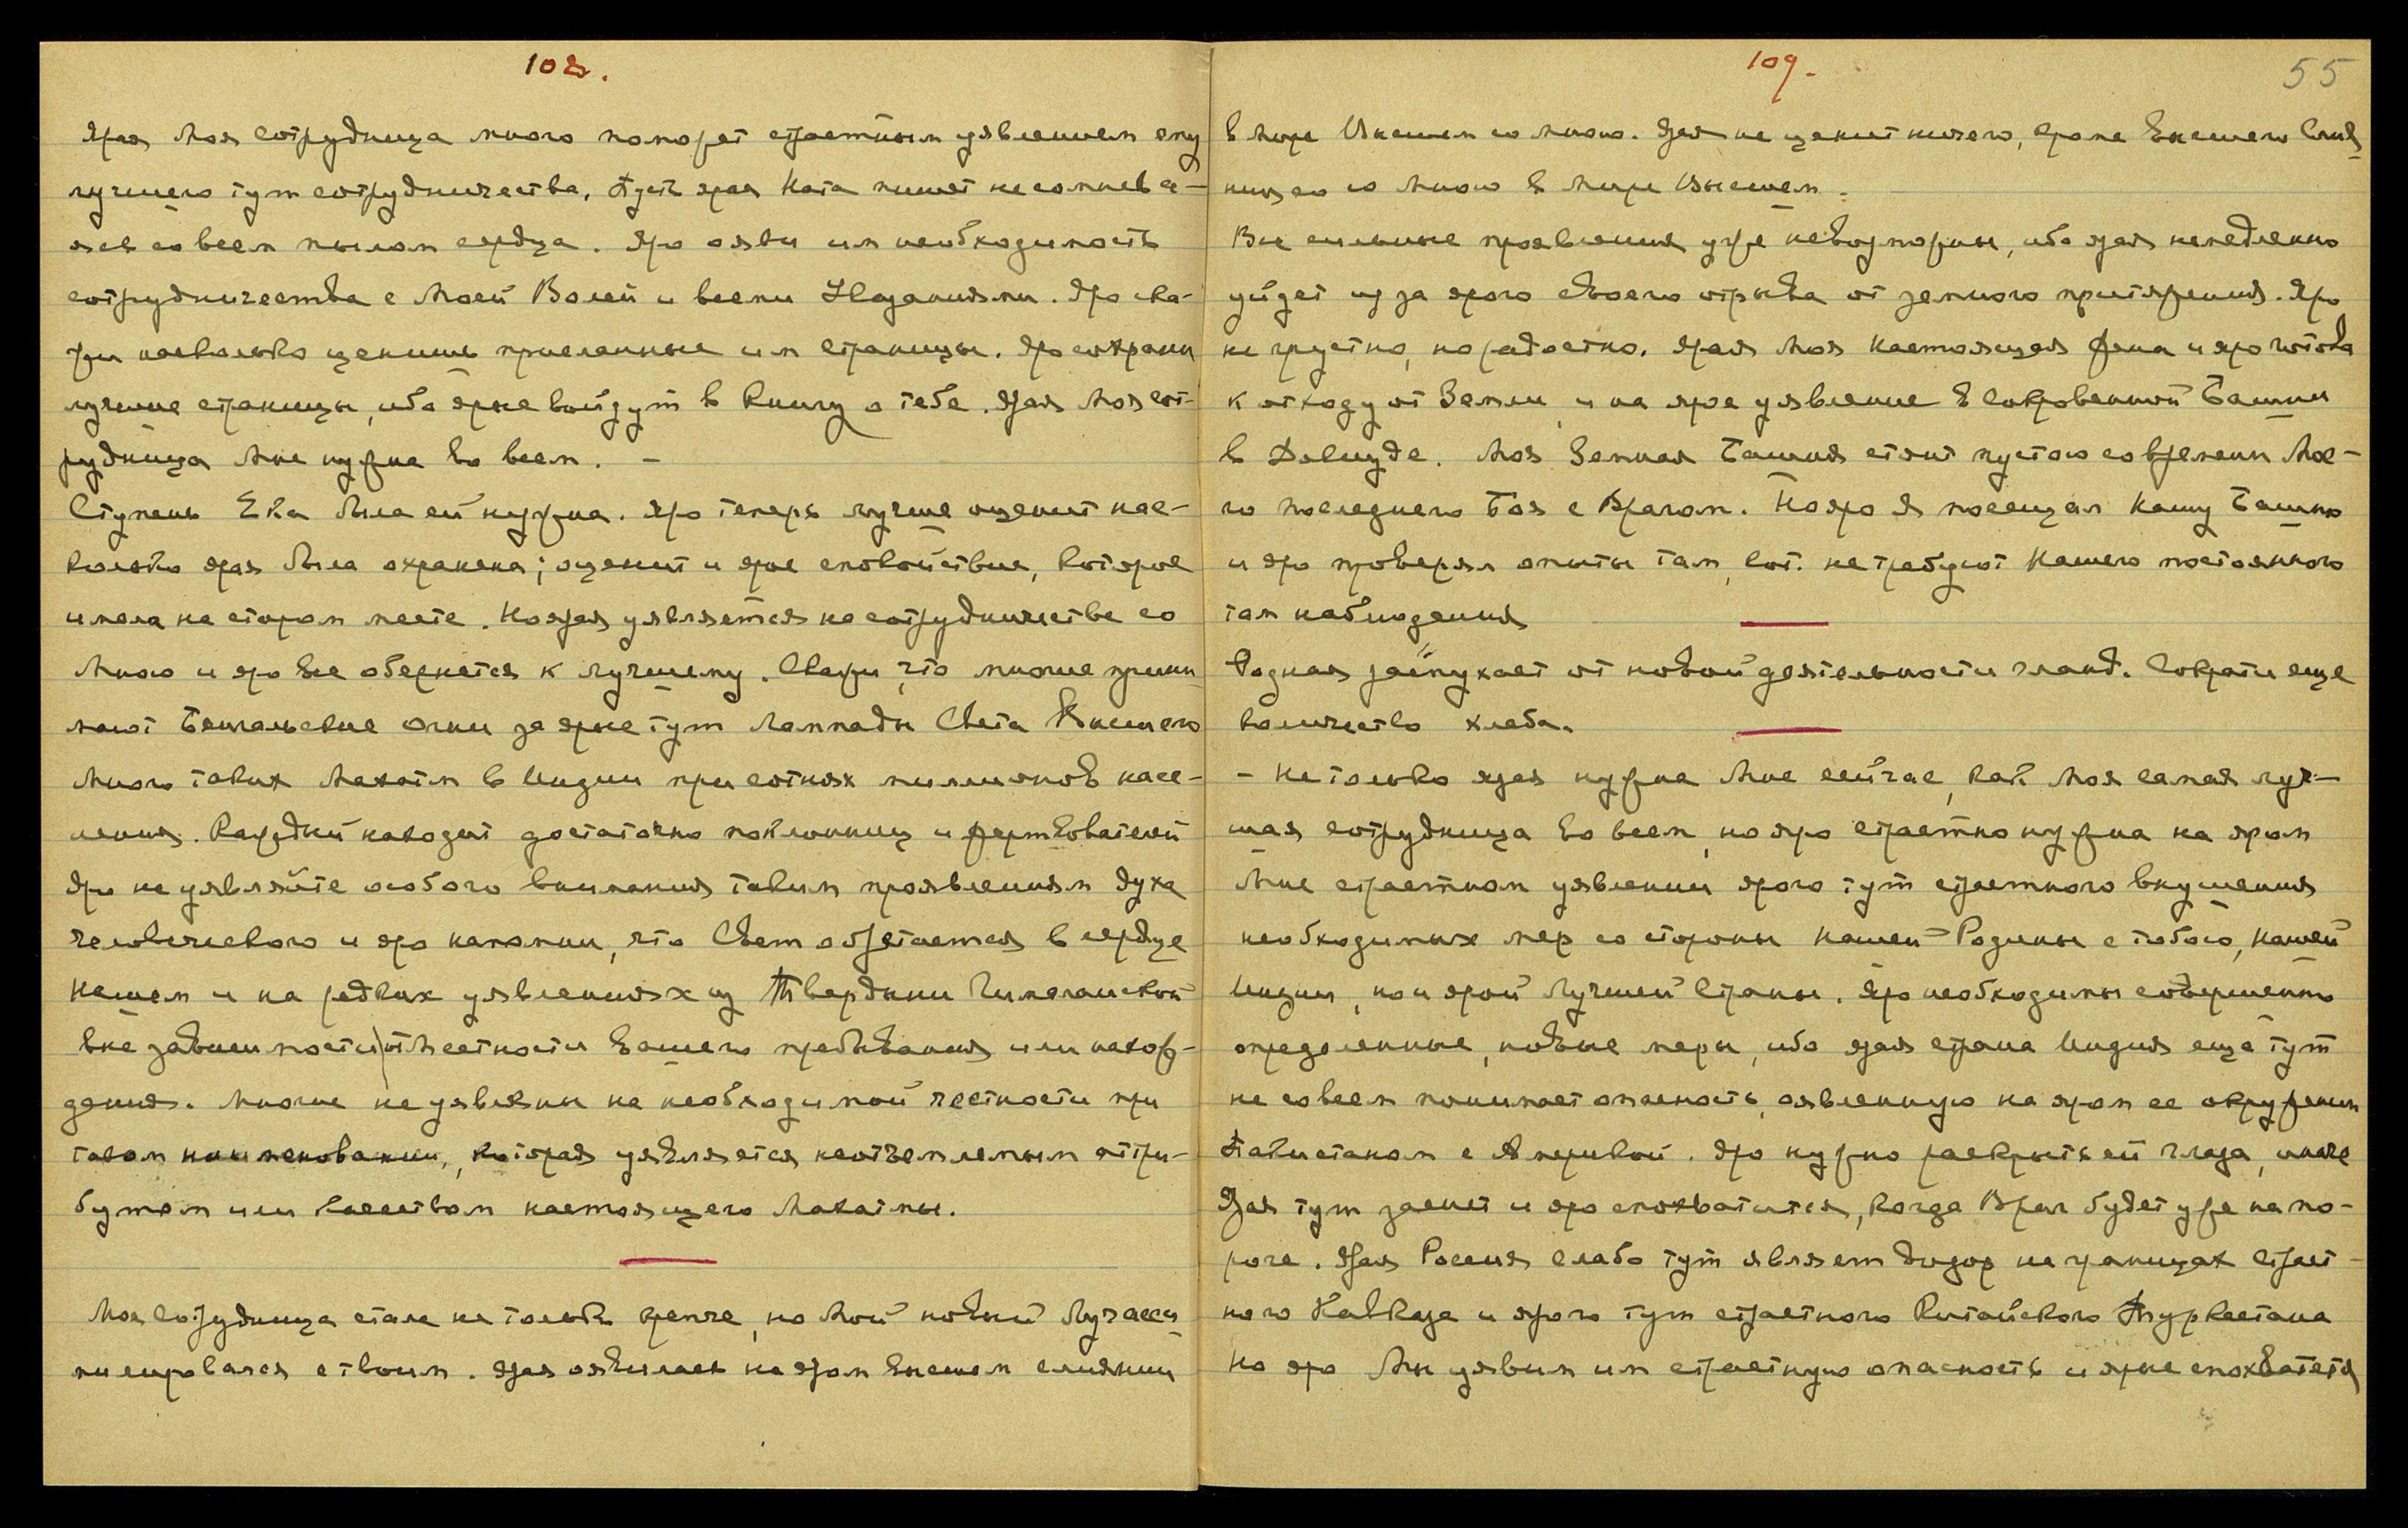 108.
Ярая Моя сотрудница много поможет страстным уявлением ему
лучшего тут сотрудничества. Пусть ярая Ната пишет не сомнева-
ясь со всем пылом сердца. Яро яви им необходимость
сотрудничества с Моей Волей и всеми Указаниями. Яро ска-
жи насколько ценишь присланные им страницы. Яро сохрани
лучшие страницы, ибо ярые войдут в Книгу о тебе. Ярая Моя сот-
рудница Мне нужна во всем. –
Ступень Ека была ей нужна. Яро теперь лучше оценит нас-
колько ярая была охранена; оценит и ярое спокойствие, которое
имела на старом месте. Но ярая уявляется на сотрудничестве со
Мною и яро все обернется к лучшему. Скажи, что многие прини-
мают Бенгальские огни за ярые тут Лампады Света Высшего
Много таких Махатм в Индии при сотнях миллионов насе-
ления. Каждый находит достаточно поклонниц и жертвователей
Яро не уявляйте особого внимания таким проявлениям духа
человеческого и яро напомни, что Свет обретается в сердце
нашем и на редких уявлениях из Твердыни Гималайской
вне зависимости от местности Вашего пребывания или нахож-
дения. Многие не уявлены на необходимой честности при
таком наименовании, которая уявляется неотъемлемым атри-
бутом или качеством настоящего Махатмы.
Моя сотрудница стала не только крепче, но Мой новый Луч асси-
милировался с твоим. Ярая явилась на яром Высшем слиянии
109.
55
в Мире Высшем со Мною. Ярая не ценит ничего, кроме Высшего Слия-
ния со Мною в Мире Высшем.
Все сильные проявления уже невозможны, ибо ярая немедленно
уйдет из за ярого своего отрыва от земного притяжения. Яро
не грустно, но радостно. Ярая Моя настоящая Жена и яро готова
к отходу от Земли, и на ярое уявление в Сокровенной Башни
в Дквцуде. Моя Земная Башня стоит пустою со времени Мое-
го последнего Боя с Врагом. Но яро Я посещал Нашу Башню
и яро проверял опыты там, кот. не требуют Нашего постоянного
там наблюдения
Родная распухает от новой деятельности гланд. Сократи еще
количество хлеба.
– Не только ярая нужна Мне сейчас, как Моя самая луч-
шая сотрудница во всем, но яро страстно нужна на яром
Мне страстном уявлении ярого тут страстного внушения
необходимых мер со стороны нашей Родины с тобою, нашей
Индии, но и ярой Лучшей Страны. Яро необходимы совершенно
определенные, новые меры, ибо ярая страна Индия еще тут
не совсем понимает опасность, явленную на яром ее окружении
Пакистаном с Америкой. Яро нужно раскрыть ей глаза, иначе
Ярая тут заснет и яро спохватится, когда Враг будет уже на по-
роге. Ярая Россия слабо тут являет дозор на границах страст-
ного Кавказа и ярого тут страстного Китайского Туркестана
Но яро Мы уявим им страстную опасность и ярые спохватятся